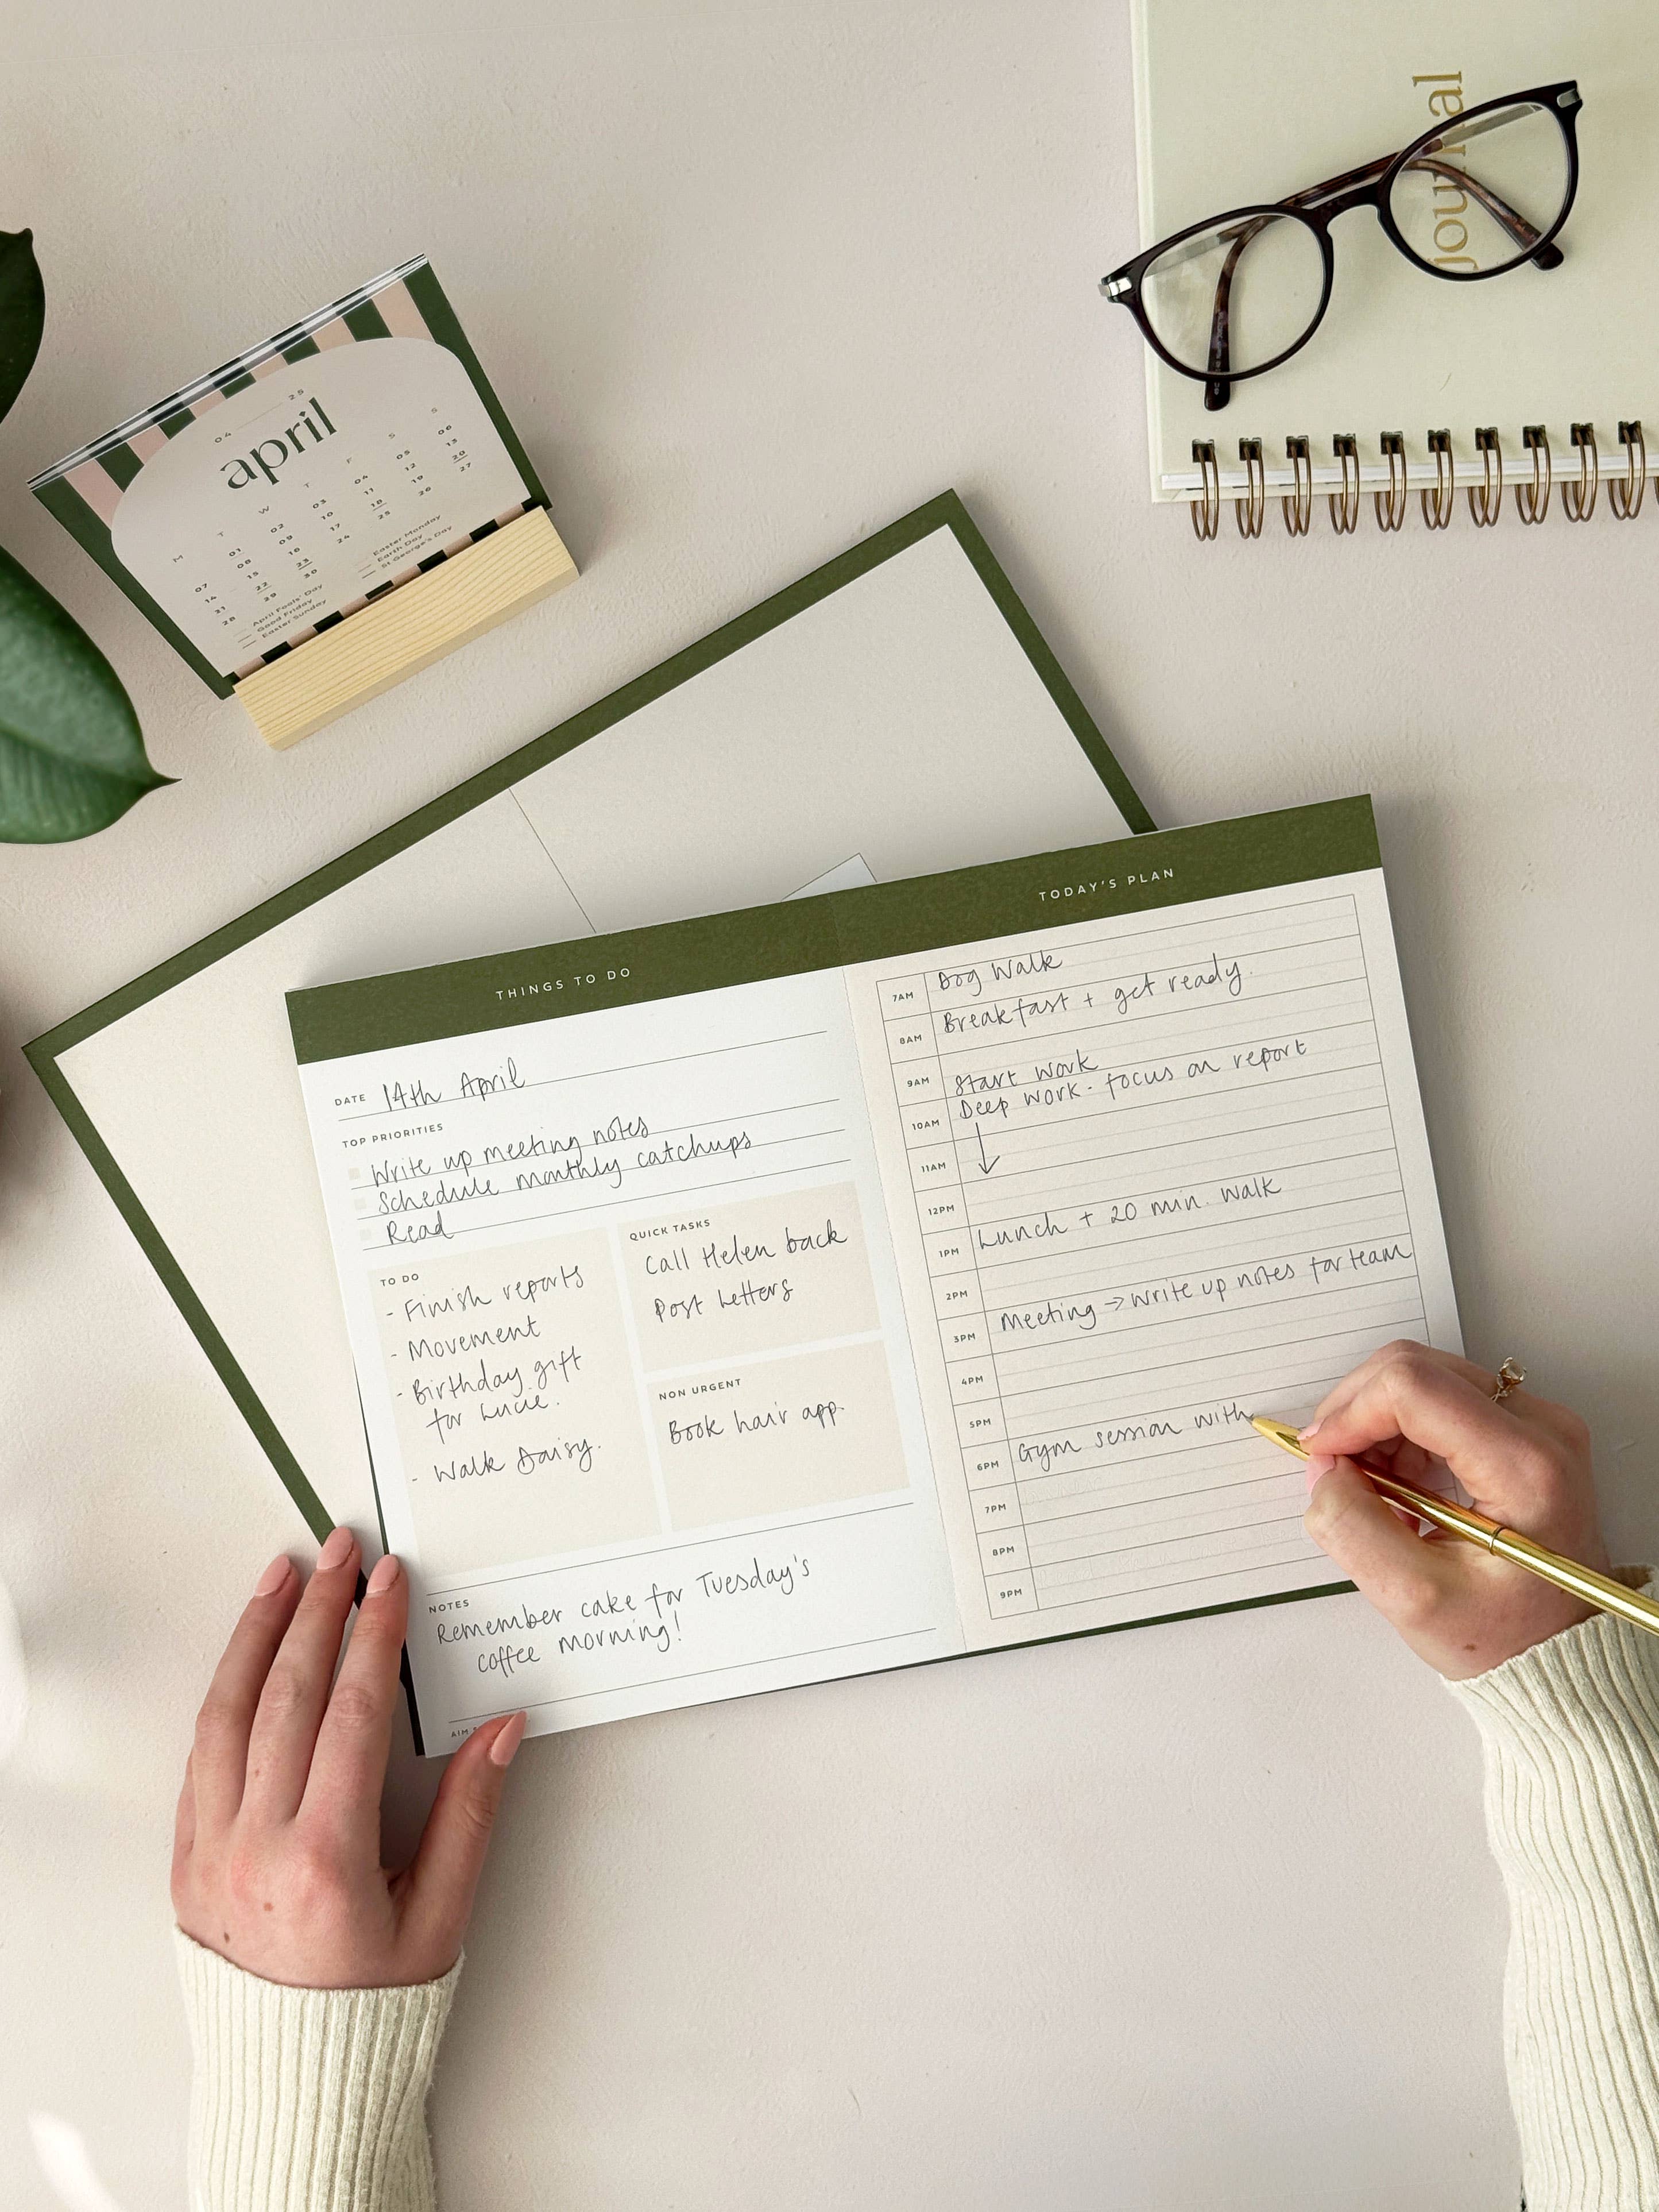 journal
04 25
april
M T W T F S S
01 02 03 04 05 06
07 08 09 10 11 12 13
14 15 16 17 18 19 20
21 22 23 24 25 26 27
28 29 30
April Fools' Day
Good Friday
Easter Sunday
Easter Monday
Earth Day
St George's Day
THINGS TO DO
DATE 14th April
TOP PRIORITIES
Write up meeting notes
Schedule monthly catchups
Read
TO DO
- Finish reports
- Movement
- Birthday gift
for Lucie.
- Walk Daisy.
QUICK TASKS
Call Helen back
Post Letters
NON URGENT
Book hair app.
NOTES
Remember cake for Tuesday's
coffee morning!
AIM
TODAY'S PLAN
7AM Dog Walk
8AM Breakfast + get ready.
9AM Start work
10AM Deep work - focus on report
11AM
12PM
1PM Lunch + 20 min. walk
2PM
3PM Meeting → write up notes for team
4PM
5PM
6PM Gym session with
7PM
8PM
9PM